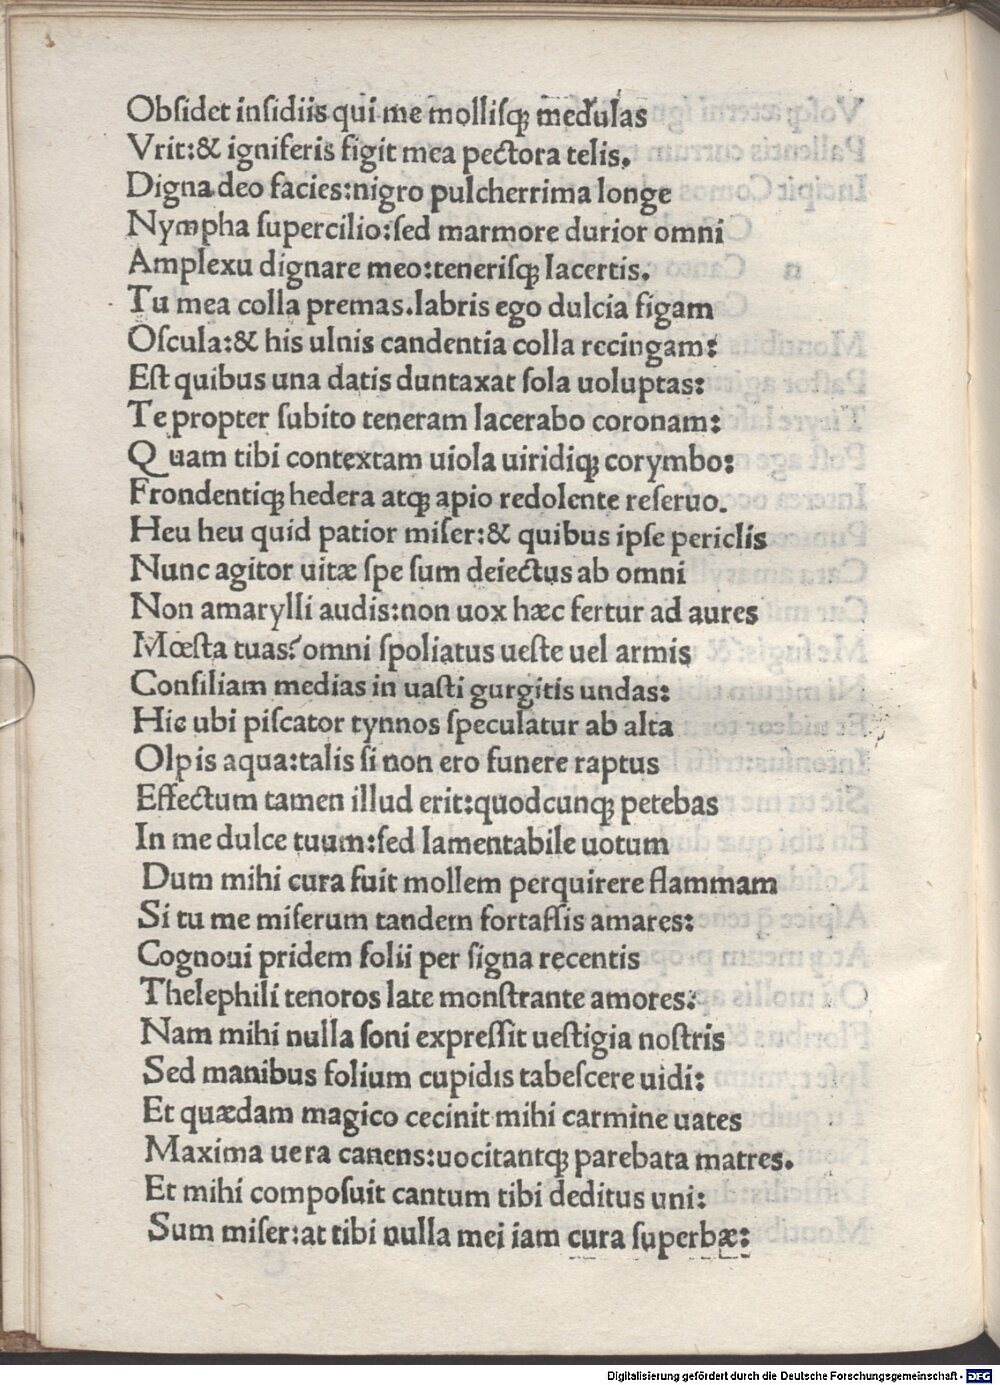 Obſidet inſidiis qui me molliſqꝫ medulas
Vrit:& igniferis figit mea pectora telis.
Digna deo facies:nigro pulcherrima longe
Nympha ſupercilio:ſed marmore durior omni
Amplexu dignare meo:teneriſqꝫ lacertis.
Tu mea colla premas.labris ego dulcia figam
Oſcula:& his ulnis candentia colla recingam:
Eſt quibus una datis duntaxat ſola uoluptas:
Te propter ſubito teneram lacerabo coronam:
Quam tibi contextam uiola uiridiqꝫ corymbo:
Frondentiqꝫ hedera atqꝫ apio redolente reſeruo.
Heu heu quid patior miſer:& quibus ipſe periclis
Nunc agitor uitæ ſpe ſum deiectus ab omni
Non amarylli audis:non uox hæc fertur ad aures
Mœſta tuas? omni ſpoliatus ueſte uel armis
Conſiliam medias in uaſti gurgitis undas:
Hic ubi piſcator tynnos ſpeculatur ab alta
Olpis aqua:talis ſi non ero funere raptus
Effectum tamen illud erit:quodcunqꝫ petebas
In me dulce tuum:ſed lamentabile uotum
Dum mihi cura fuit mollem perquirere flammam
Si tu me miſerum tandem fortaſſis amares:
Cognoui pridem folii per ſigna recentis
Thelephili tenoros late monſtrante amores:
Nam mihi nulla ſoni expreſſit ueſtigia noſtris
Sed manibus folium cupidis tabeſcere uidi:
Et quædam magico cecinit mihi carmine uates
Maxima uera canens:uocitantqꝫ parebata matres.
Et mihi compoſuit cantum tibi deditus uni:
Sum miſer:at tibi nulla mei iam cura ſuperbæ:
Digitalisierung gefördert durch die Deutsche Forschungsgemeinschaft - DFG